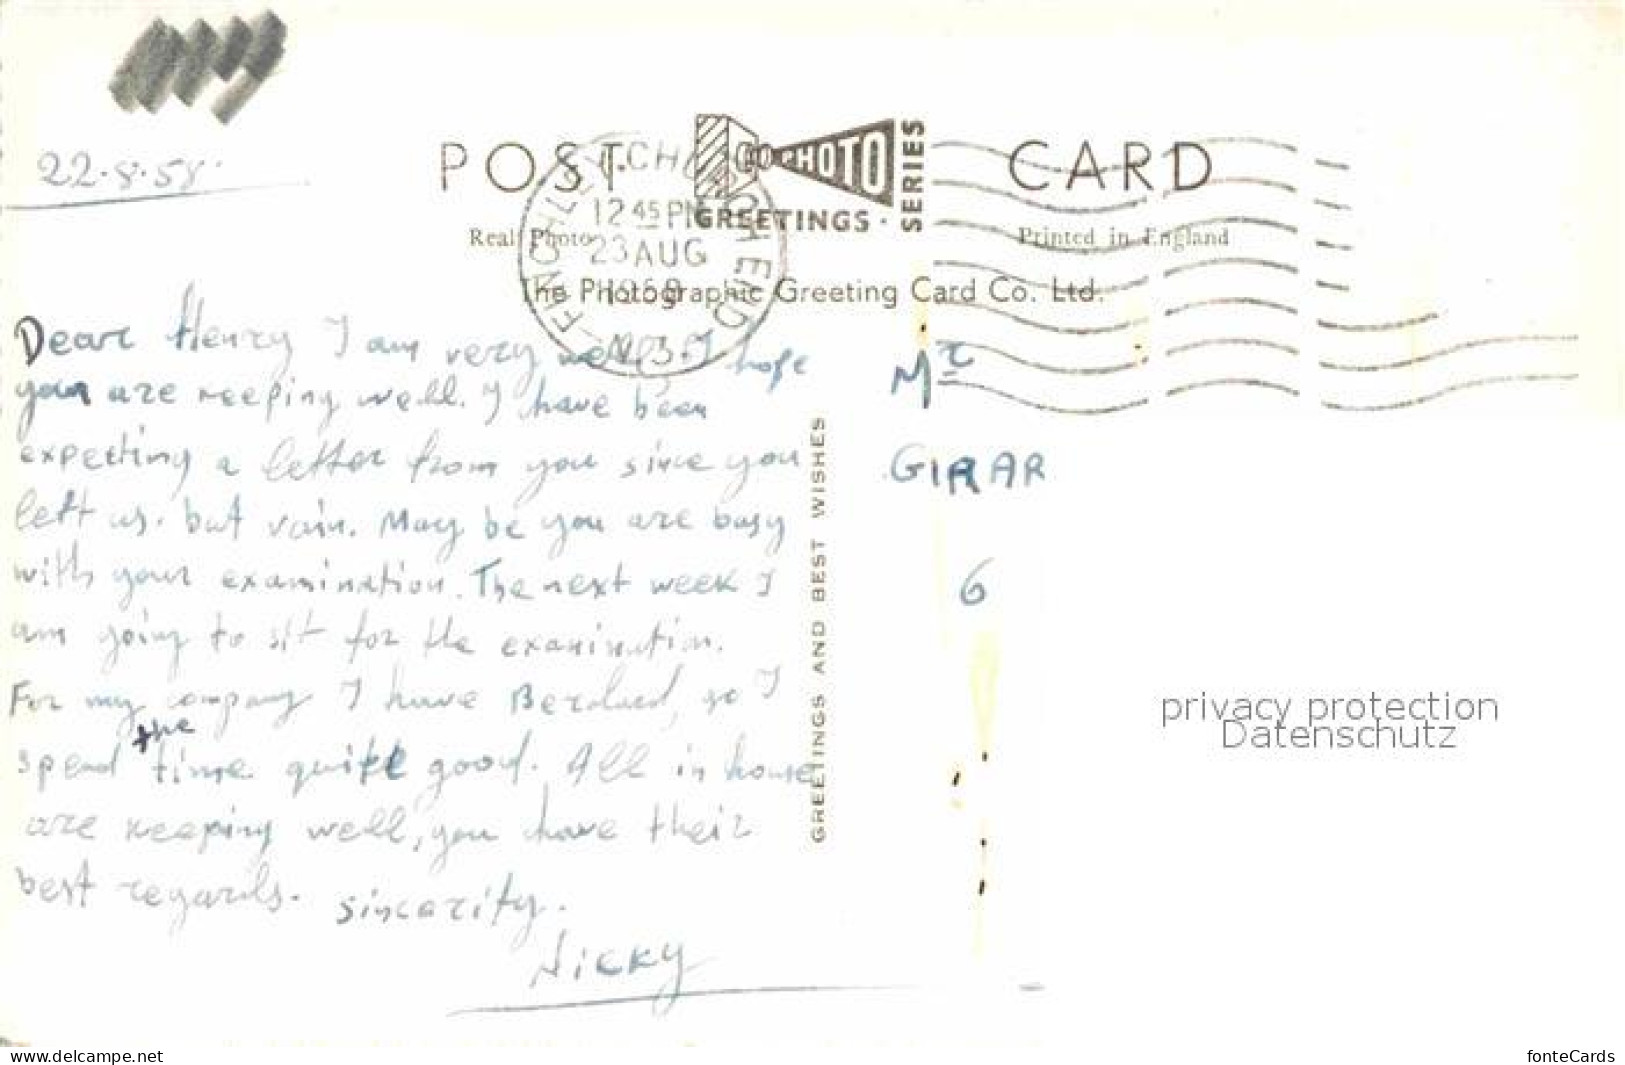 22.8.58.
POST CARD
PHOTO
GREETINGS · SERIES
Real Photo
Printed in England
The Photographic Greeting Card Co. Ltd.
12 45 PM
23 AUG
1958
Dear Henry I am very well. I hope
you are keeping well. I have been
expecting a letter from you since you
left us. but vain. May be you are busy
with your examination. The next week I
am going to sit for the examination.
For my company I have so I
spend the time quite good. All in house
are keeping well, you have their
best regards. sincarity.
Nicky
GREETINGS AND BEST WISHES
Mr
GIRAR
6
privacy protection
Datenschutz
www.delcampe.net
fonteCards